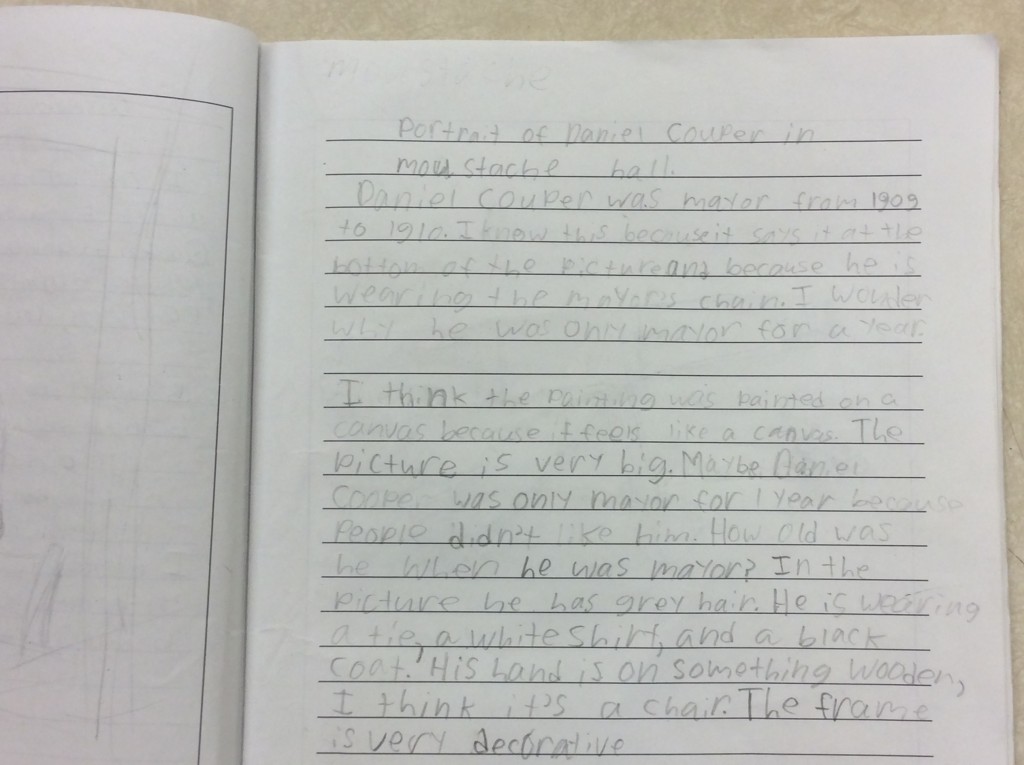 Portrait of Daniel Couper in
moustache hall.
Daniel Couper was mayor from 1909
to 1910. I know this because it says it at the
bottom of the picture and because he is
wearing the mayor's chain. I wonder
why he was only mayor for a year.
I think the painting was painted on a
canvas because it feels like a canvas. The
picture is very big. Maybe Daniel
Couper was only mayor for 1 year because
people didn't like him. How old was
he when he was mayor? In the
picture he has grey hair. He is wearing
a tie, a white shirt, and a black
coat. His hand is on something wooden,
I think it's a chair. The frame
is very decorative